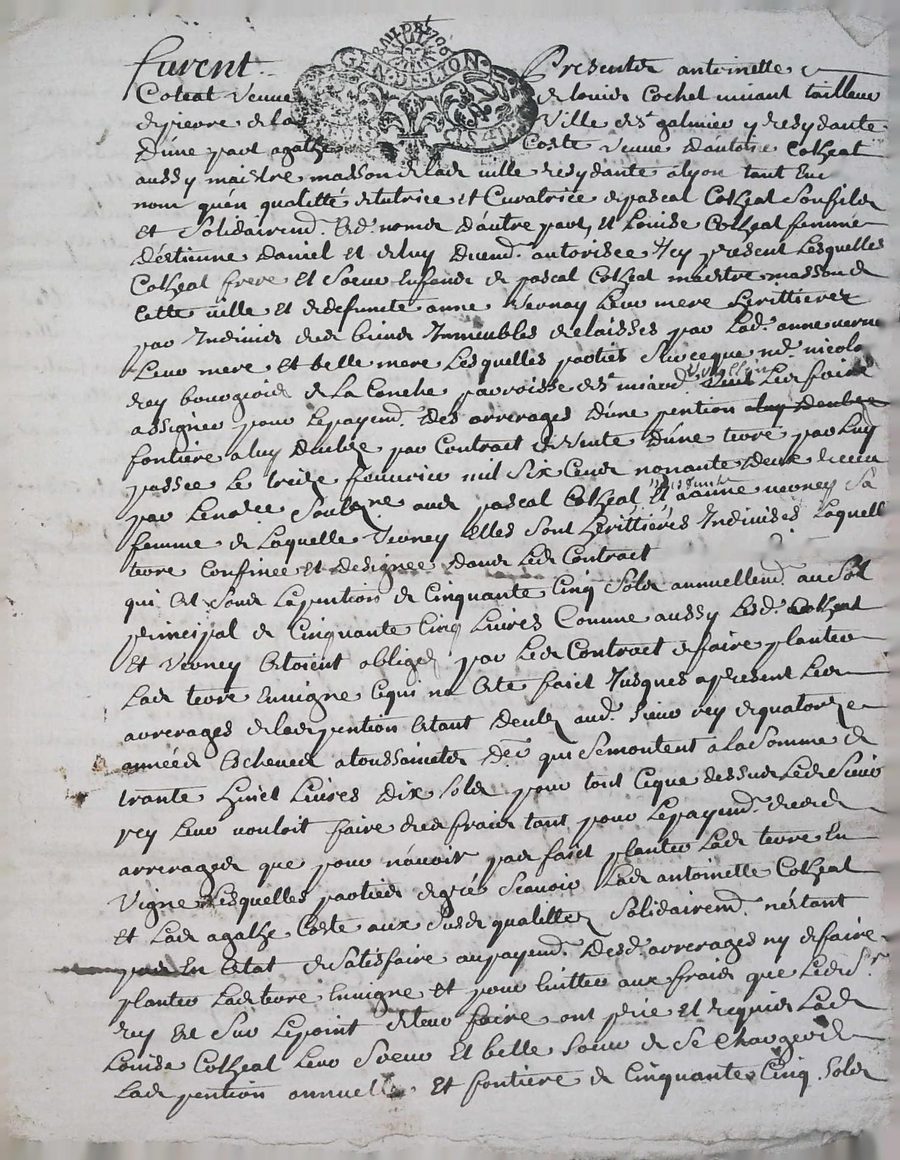 GEN. DE LION
furent Presentes antoinette
Coteat veuve de louis Cochet vivant tailleur
de pierre de la ville de st galmier y residante
d'une part agathe Coste veuve d'antoine Cotheat
aussy maistre masson de lad ville residante a lyon tant en
nom qu'en qualitté de tutrice et Curatrice de pascal Cotheat son fils
et Solidairemt. esd. noms d'autre part et Louise Cotheat femme
d'estienne Daniel et de luy duemt. autorisee Icy present Lesquelles
Cotheat frere et Soeur Enfands de pascal Cotheat maistre masson de
cette ville et de defuncte anne Vernay leur mere herittieres
par Indivis des biens Immeubles delaisses par Lad. anne verne
Leur mere et belle mere Lesquelles parties Sur ceque nd. nicolas
rey bourgeois de La Conche parroisse de st. miard Les faire
assigner pour Lepayemt. des arrerages d'une pention aluy deube
fontiere aluy deube par Contract de vente d'une terre par Luy
passee le treize feuvrier mil six Cends nonante deux receu
par Lenotre aud pascal Cotheal et a anne verney sa
femme de laquelle Verney Elles Sont herittieres Indivises Laquelle
terre Confinee et designee dans Led Contract
qui est Sous Lapention de Cinquante Cinq Sols annuellemt. au Sol
principal de Cinquante Cinq Livres Comme aussy Lesd. Cotheat
et Verney Estoient obliges par Led Contract de faire planter
Lad terre Envigne Cequi na Esté faict Jusques apresent Led
arrerages de lad pention Estant Deubz aud. Sieur rey de quatorze
années Escheues a toussaincts der. qui se montent a La Somme de
trante huict Livres dix Sols pour tout Ceque dessus Led Sieur
rey leur vouloit faire des frais tant pour Lepayemt. desd
arrerages que pour n'avoir pas faict planter Lad terre En
Vigne Lesquelles parties de gré Scavoir Lad antoinette Cotheat
et Lad agathe Coste aux Susd qualittes Solidairemt. n'estant
pas En Estat de Satisfaire aupayemt. desd. arrerages ny de faire
planter Lad terre Envigne et pour Euitter aux frais que Led Sr.
rey Est Sur Lepoint de leur faire ont prié et requis Lad
Louise Cotheal Leur Soeur et belle Soeur de Se Charger de
Lad pention annuelle et fontiere de Cinquante Cinq Sols